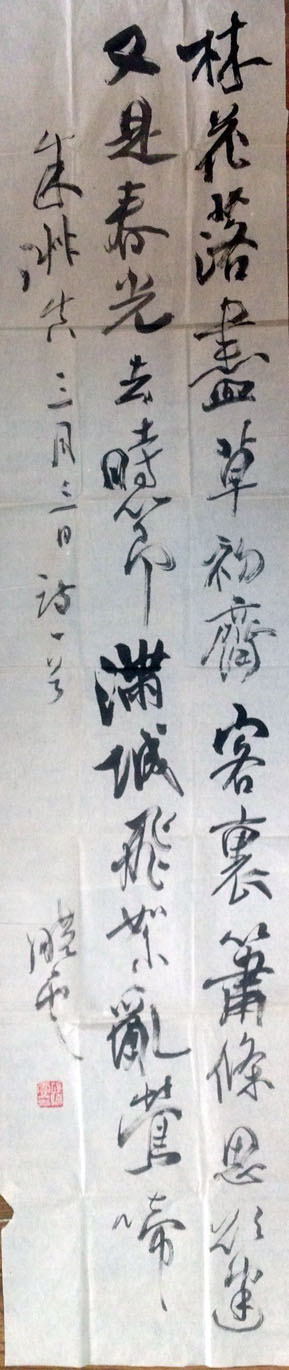 林花落盡草初齊客裏蕭條思欲迷
又是春光去時節滿城飛絮亂鶯啼
朱淑真三月三日詩一首
曉雲